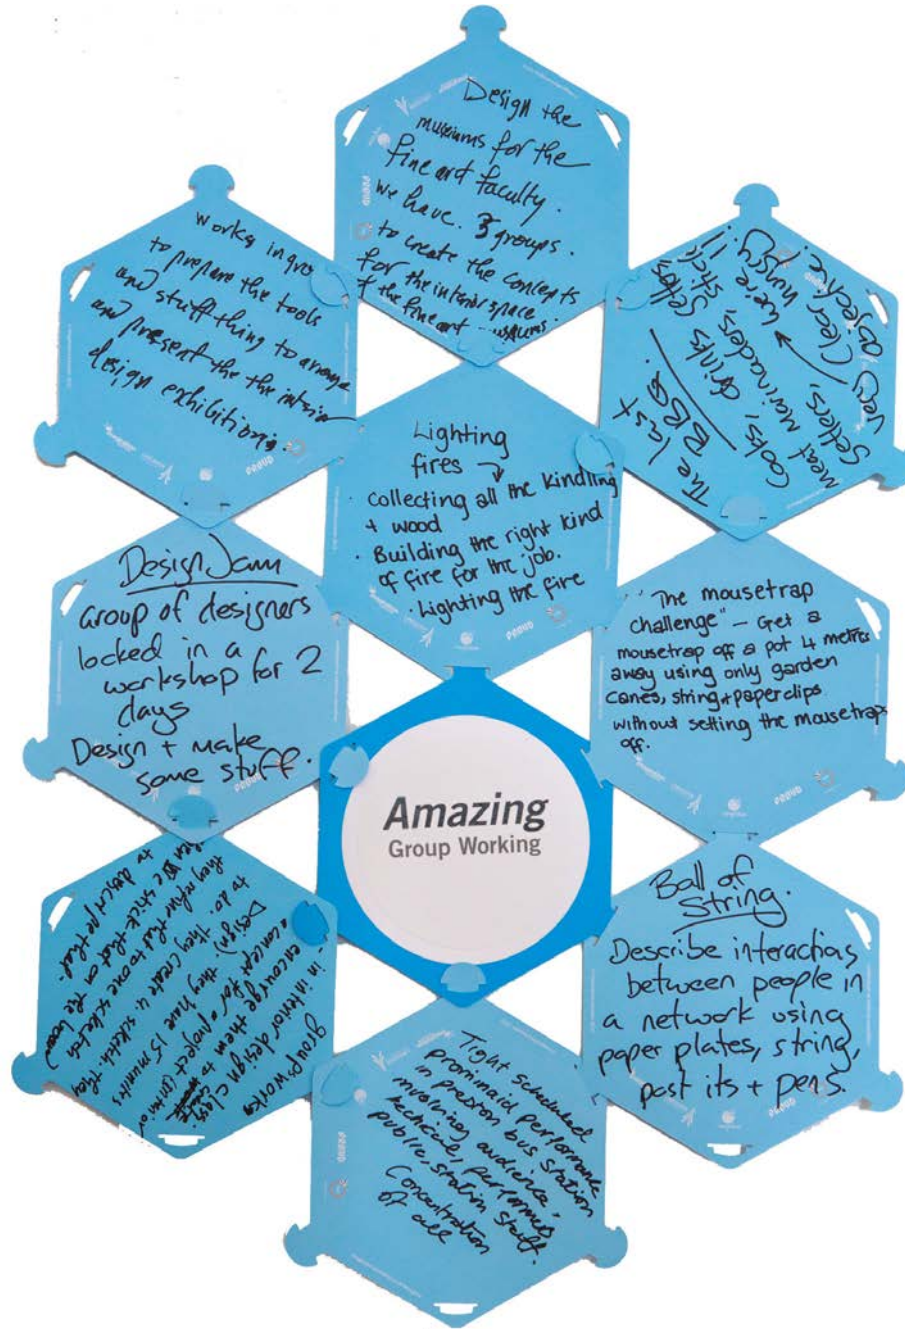 Design the
museums for the
fine art faculty.
we have. 3 groups.
to create the concepts
for the interior space
of the fine art
works in gro
to prepare the tools
and stuff thing to arrange
and present the the interior
design exhibition
The last
BBQ
Cooks, drinks sellers,
meat marinaders,
Setters,
very clear
objective!
we're still
hungry
Lighting
fires →
· Collecting all the kindling
+ wood
· Building the right kind
of fire for the job.
· Lighting the fire
Design Jam
Group of designers
locked in a
workshop for 2
days
Design + make
some stuff.
"The mousetrap
challenge" – Get a
mousetrap off a pot 4 metres
away using only garden
canes, string + paperclips
without setting the mousetraps
off.
Amazing
Group Working
group works
in interior design class.
encourge them to
concept for a project (
Design). they have 15 minutes
to do. they create 4 sketch. they
refine that to one sketch
stick that on the board
to describe that.
Ball of
String.
Describe interactions
between people in
a network using
paper plates, string,
post its + pens.
Tight scheduled
prominaid performance
in preston bus station
involving audience,
technical, performers
public, station staff.
Concentration
of all
PROUD
PROUD
PROUD
PROUD
PROUD